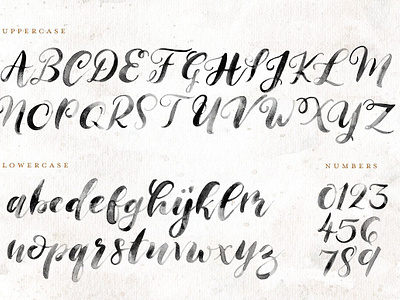 UPPERCASE
ABCDEFGHIJKLM
NOPQRSTUVWXYZ
LOWERCASE
abcdefghijklm
nopqrstuvwxyz
NUMBERS
0123
456
789